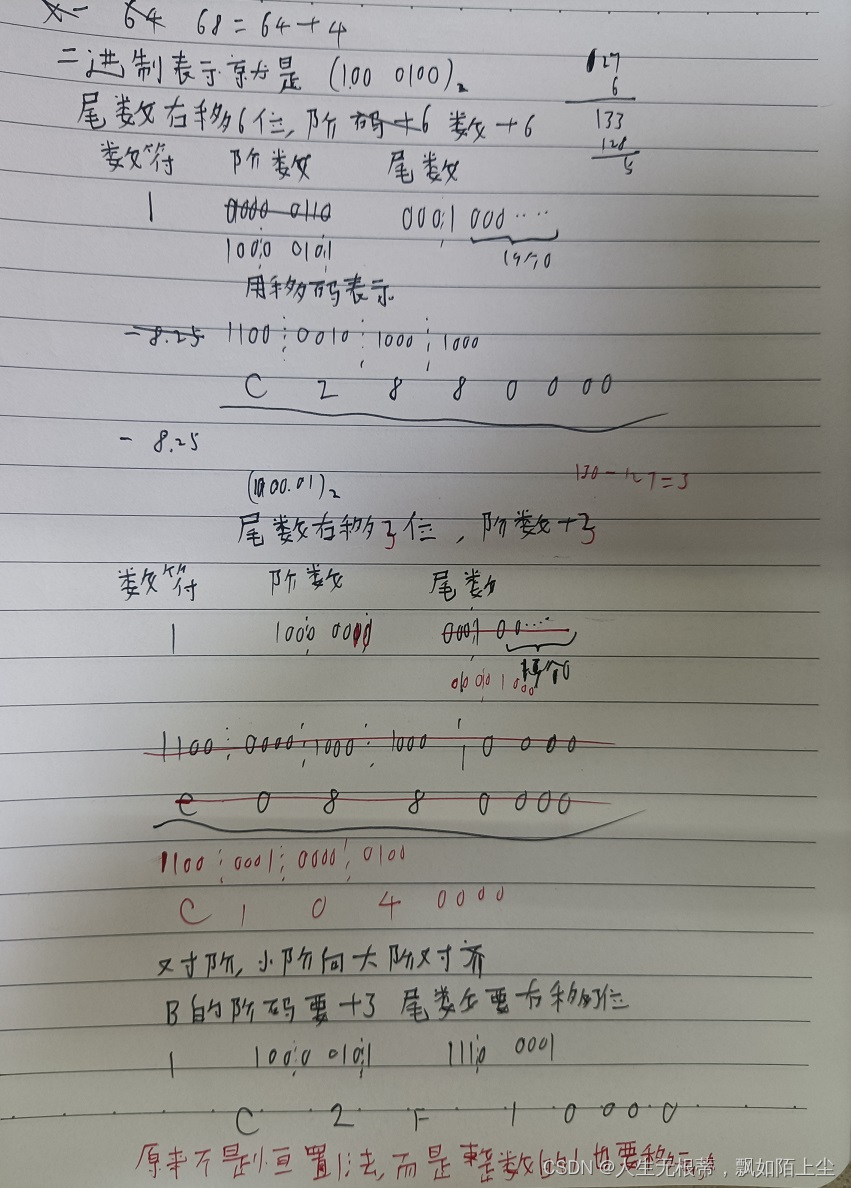 64 68 = 64 + 4
二进制表示就是 (100 0100)₂
127
6
133
128
5
尾数右移6位,阶码+6 数+6
数符 阶数 尾数
1 0000 0110 0001 000....
1000 0101
19个0
用移码表示
-8.25 1100 0010 1000 1000
C 2 8 8 0 0 0 0
- 8.25
(1000.01)₂ 130 - 127 = 3
尾数右移3位,阶数+3
数符 阶数 尾数
1 1000 0010 0001 00....
0000 1 000
1100 0000 1000 1000 1 0 0 0 0
C 0 8 8 0 0 0 0
1100 0001 0000 0100
C 1 0 4 0 0 0 0
对阶,小阶向大阶对齐
B的阶码要+3 尾数要右移3位
1 1000 0101 1110 0001
C 2 F 1 0 0 0 0
原来不是恒置1法,而是整数的1也要移
CSDN @人生无根蒂,飘如陌上尘